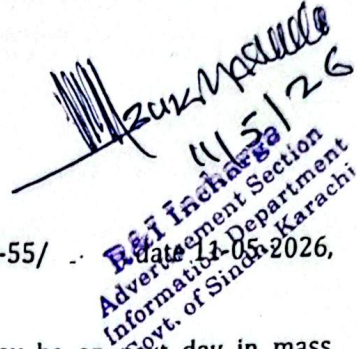 11/5/26
R&I Incharge
Advertisement Section
Information Department
Govt. of Sindh, Karachi
-55/ date 11-05-2026,
day in mass